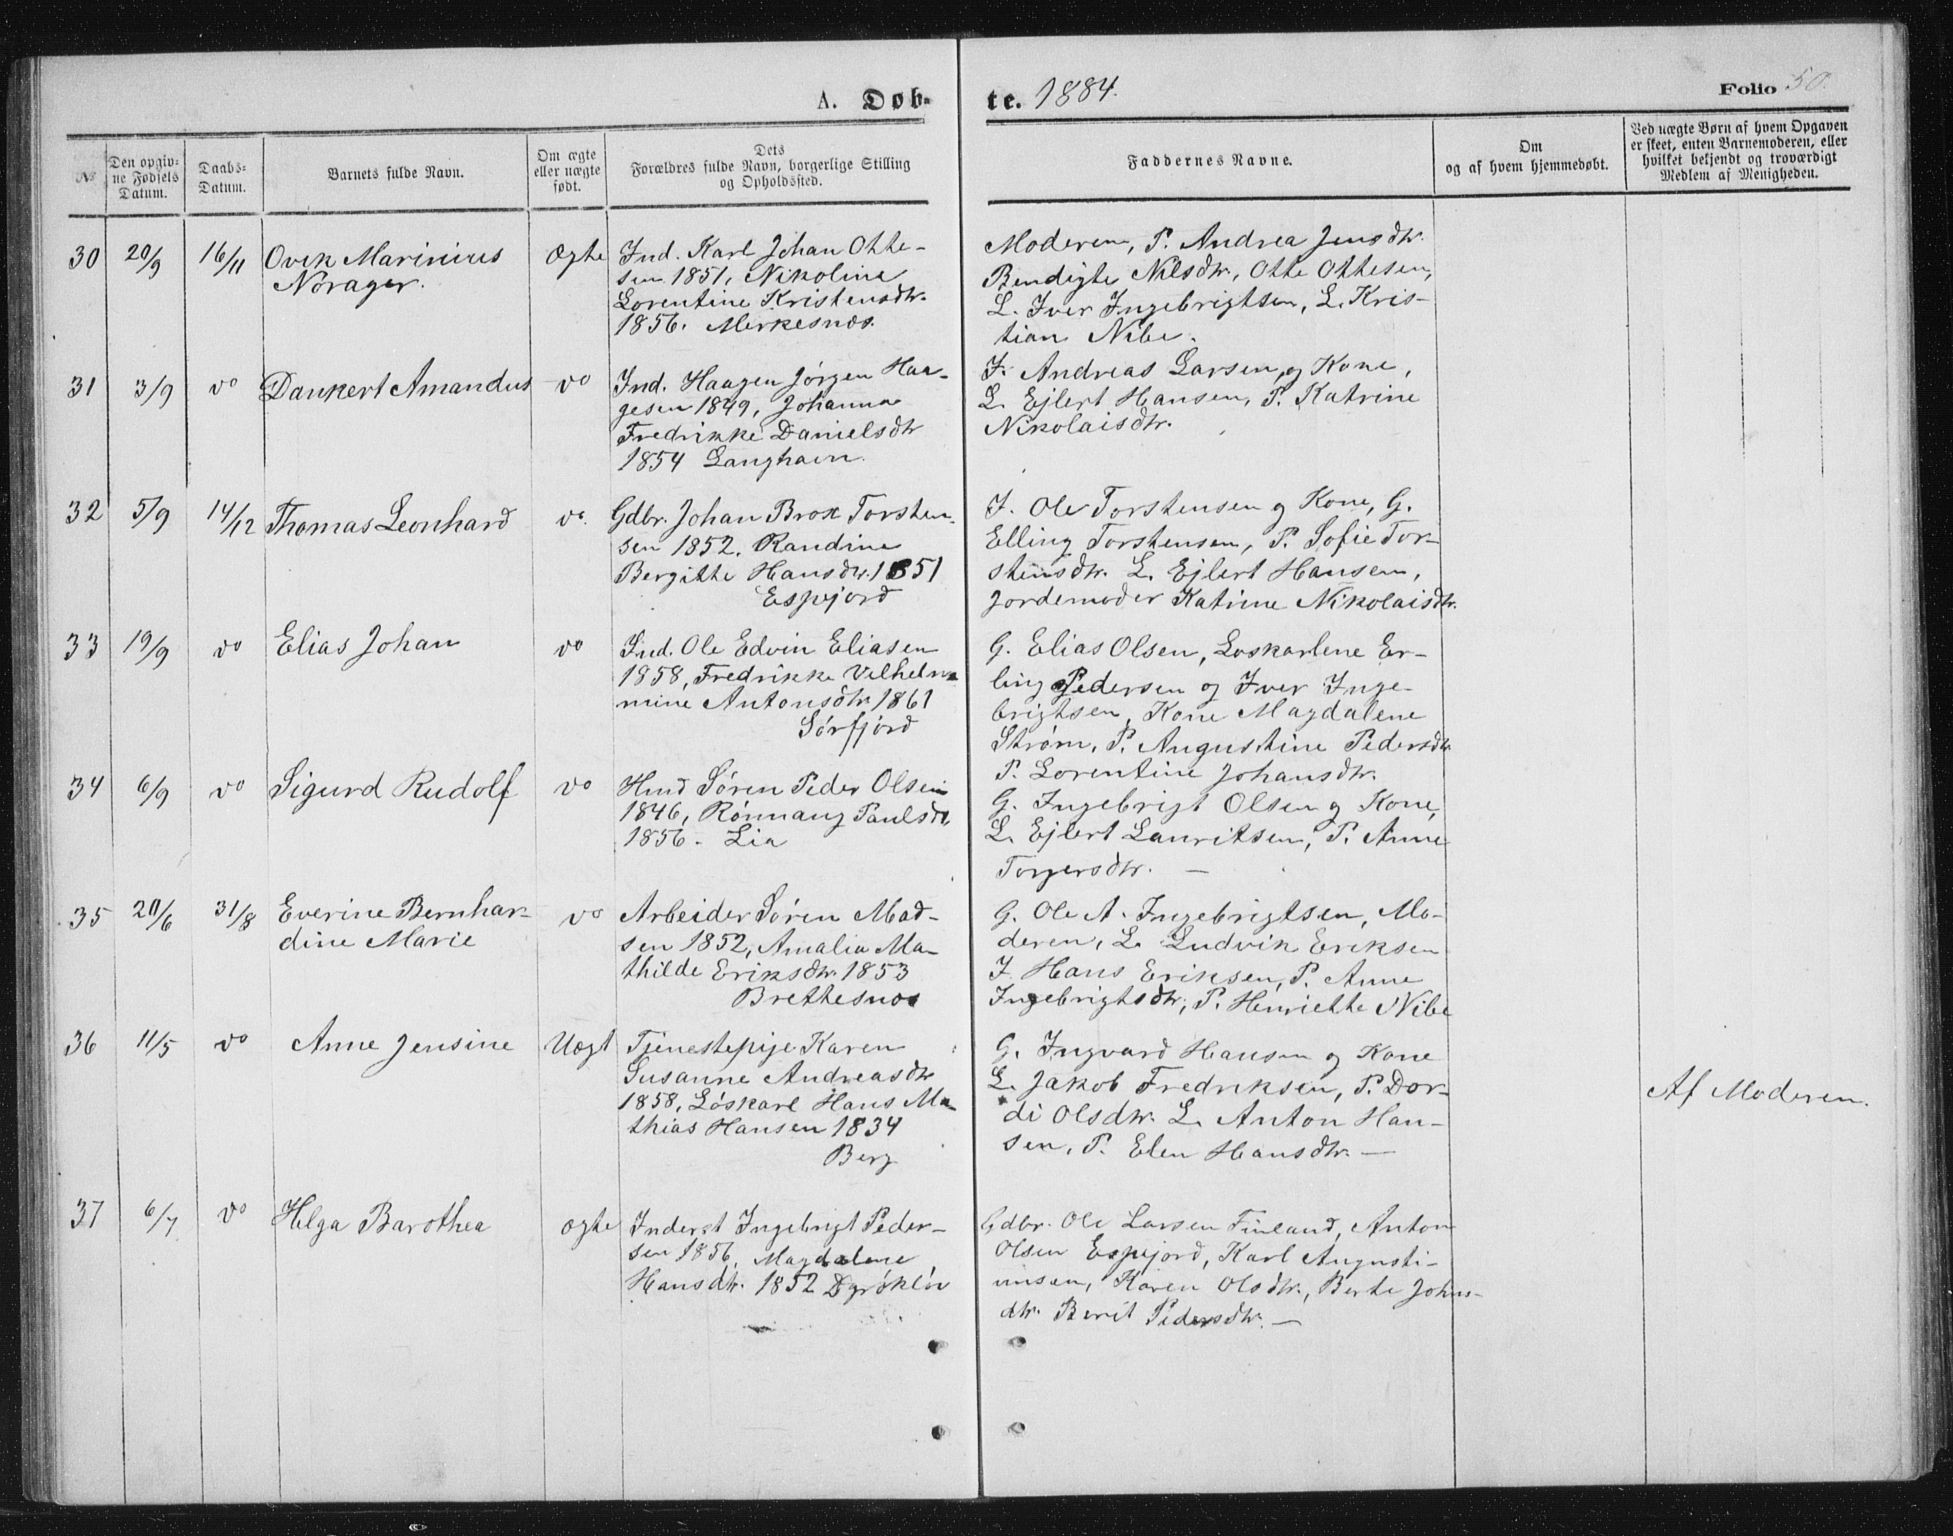 A. Døb-
te. 1884.
Folio 50.
No
Den opgiv-
ne Fødsels
Datum.
Daabs-
Datum.
Barnets fulde Navn.
Om ægte
eller uægte
født.
Dets
Forældres fulde Navn, borgerlige Stilling
og Opholdssted.
Faddernes Navne.
Om
og af hvem hjemmedøbt.
Ved uægte Børn af hvem Opgaven
er skeet, enten Barnemoderen, eller
hvilket bekjendt og troværdigt
Medlem af Menigheden.
30 20/9 16/11 Ovik Marinius Ægte Ind. Karl Johan Otte-
Norager.
sen 1851, Nikolina
Lorentine Kristensdtr.
1856. Merkesnæs.
Moderen, P. Andrea Jensdtr.
Bendigte Nilsdtr, Otte Ottesen,
L. Iver Ingebrigtsen, L. Kris-
tian Nibe.
31 3/9 do Dankert Amandus do Ind. Haagen Jørgen Haa-
gesen 1849, Johanna
Fredrikke Danielsdtr
1854 Langhavn.
I. Andreas Larsen og Kone,
L. Ejlert Hansen, P. Katrine
Nikolaisdtr.
32 5/9 14/12 Thomas Leonhard do. Gdbr. Johan Brox Torsten-
sen 1852, Randine
Bergitte Hansdtr. 1851
Espejord
I. Ole Torstensen og Kone, G.
Elling Torstensen, P. Sofie Tor-
stensdtr. L. Ejlert Hansen,
Jordemoder Katrine Nikolaisdtr.
33 19/9 do Elias Johan do Ind. Ole Edvin Eliasen
1858, Fredrikke Vilhelm-
mine Antonsdtr 1861
Sørfjord
G. Elias Olsen, Løskarlene Er-
ling Pedersen og Iver Inge-
brigtsen, Kone Magdalene
Strøm, P. Augustine Pedersdtr
P. Lorentine Johansdtr.
34 6/9 do Sigurd Rudolf do Hmd Søren Peder Olsen
1846, Rønnaug Paulsdtr
1856. Lia
G. Ingebrigt Olsen og Kone,
L. Ejlert Lauritsen, P. Anne
Torgersdtr. —
35 20/6 31/8 Everine Bernhar- do Arbeider Søren Mad-
dine Marie
sen 1852, Amalia Ma-
thilde Eriksdtr. 1853
Brettesnæs
G. Ole A. Ingebrigtsen, Mo-
deren, L. Ludvik Eriksen
I. Hans Eriksen, P. Anne
Ingebrigtsdtr, P. Henriette Nibe
36 11/5 do Anne Jensine Uægt Tjenestepige Karen
Susanne Andreasdtr
1858, Løskarl Hans Ma-
thias Hansen 1834
Berg
G. Ingvard Hansen og Kone
L. Jakob Fredriksen, P. Dor-
di Olsdtr. L. Anton Han-
sen, P. Elen Hansdtr. —
Af Moderen.
37 6/7 do Helga Barothea Ægte Inderst Ingebrigt Peder-
sen 1856, Magdalene
Hansdtr. 1852 Dyrøkløv
Gdbr. Ole Larsen Finland, Anton
Olsen Espejord, Karl Augusti-
nusen, Karen Olsdtr., Berte Johns-
dtr. Berit Pedersdtr. —